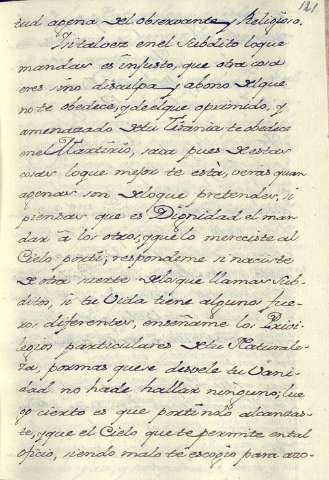 121
tud agena del observante, y Religioso.
Y si talvez en el Subdito lo que
mandas es injusto, que otra cosa
eres sino disculpa, y abono del que
no te obedece, y del que oprimido, y
amenazado de tu Tirania te obedece
en el Martirio, saca pues de estas
cosas lo que mejor te está, verás quan
agenas son de lo que pretendes, si
piensas que es Dignidad el man-
dar á los otros, y que lo mereciste al
Cielo por ti, respondeme si naciste
de otra suerte de los que llamas Sub-
ditos, si tu Vida tiene algunos fue-
ros diferentes, enseñame los Privi-
legios particulares de tu Naturale-
za, por mas que se desvele tu Vani-
dad no há de hallar ninguno, lue-
go cierto es que por ti no lo alcanzas-
te, y que el Cielo que te permite en tal
oficio, siendo malo te escogió para azo-